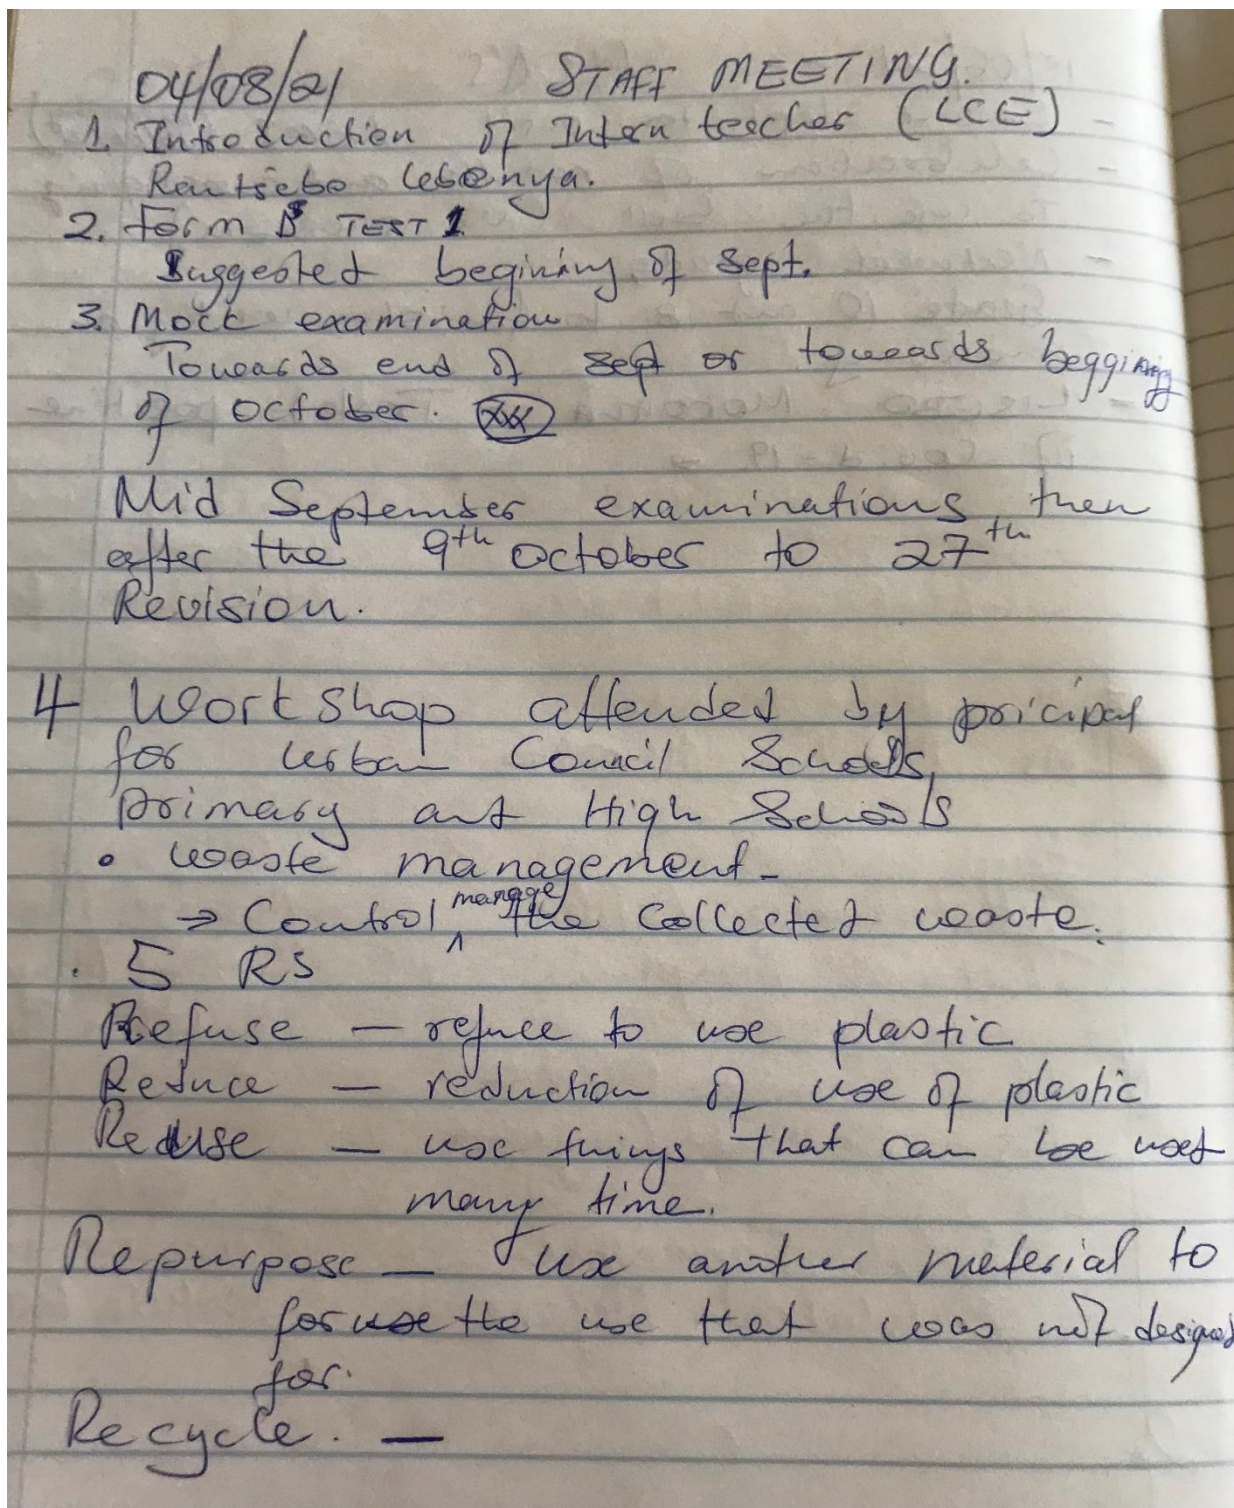 04/08/21 STAFF MEETING.
1. Introduction of Intern teacher (LCE)
Rantsebo Lebenya.
2. Form TEST 1
Suggested begining of Sept.
3. Mock examination
Towards end of sept or towards beggining
of october. XXX
Mid September examinations, then
after the 9th october to 27th
Revision.
4 Workshop attended by pricipal
for urban Council Schools,
primary and High Schools
• waste management-
→ Control manage the collected waste.
. 5 RS
Refuse — refuce to use plastic
Reduce — reduction of use of plastic
Reuse — use things that can be used
many time.
Repurpose — Use another material to
for use the use that was not designed
for.
Recycle. —